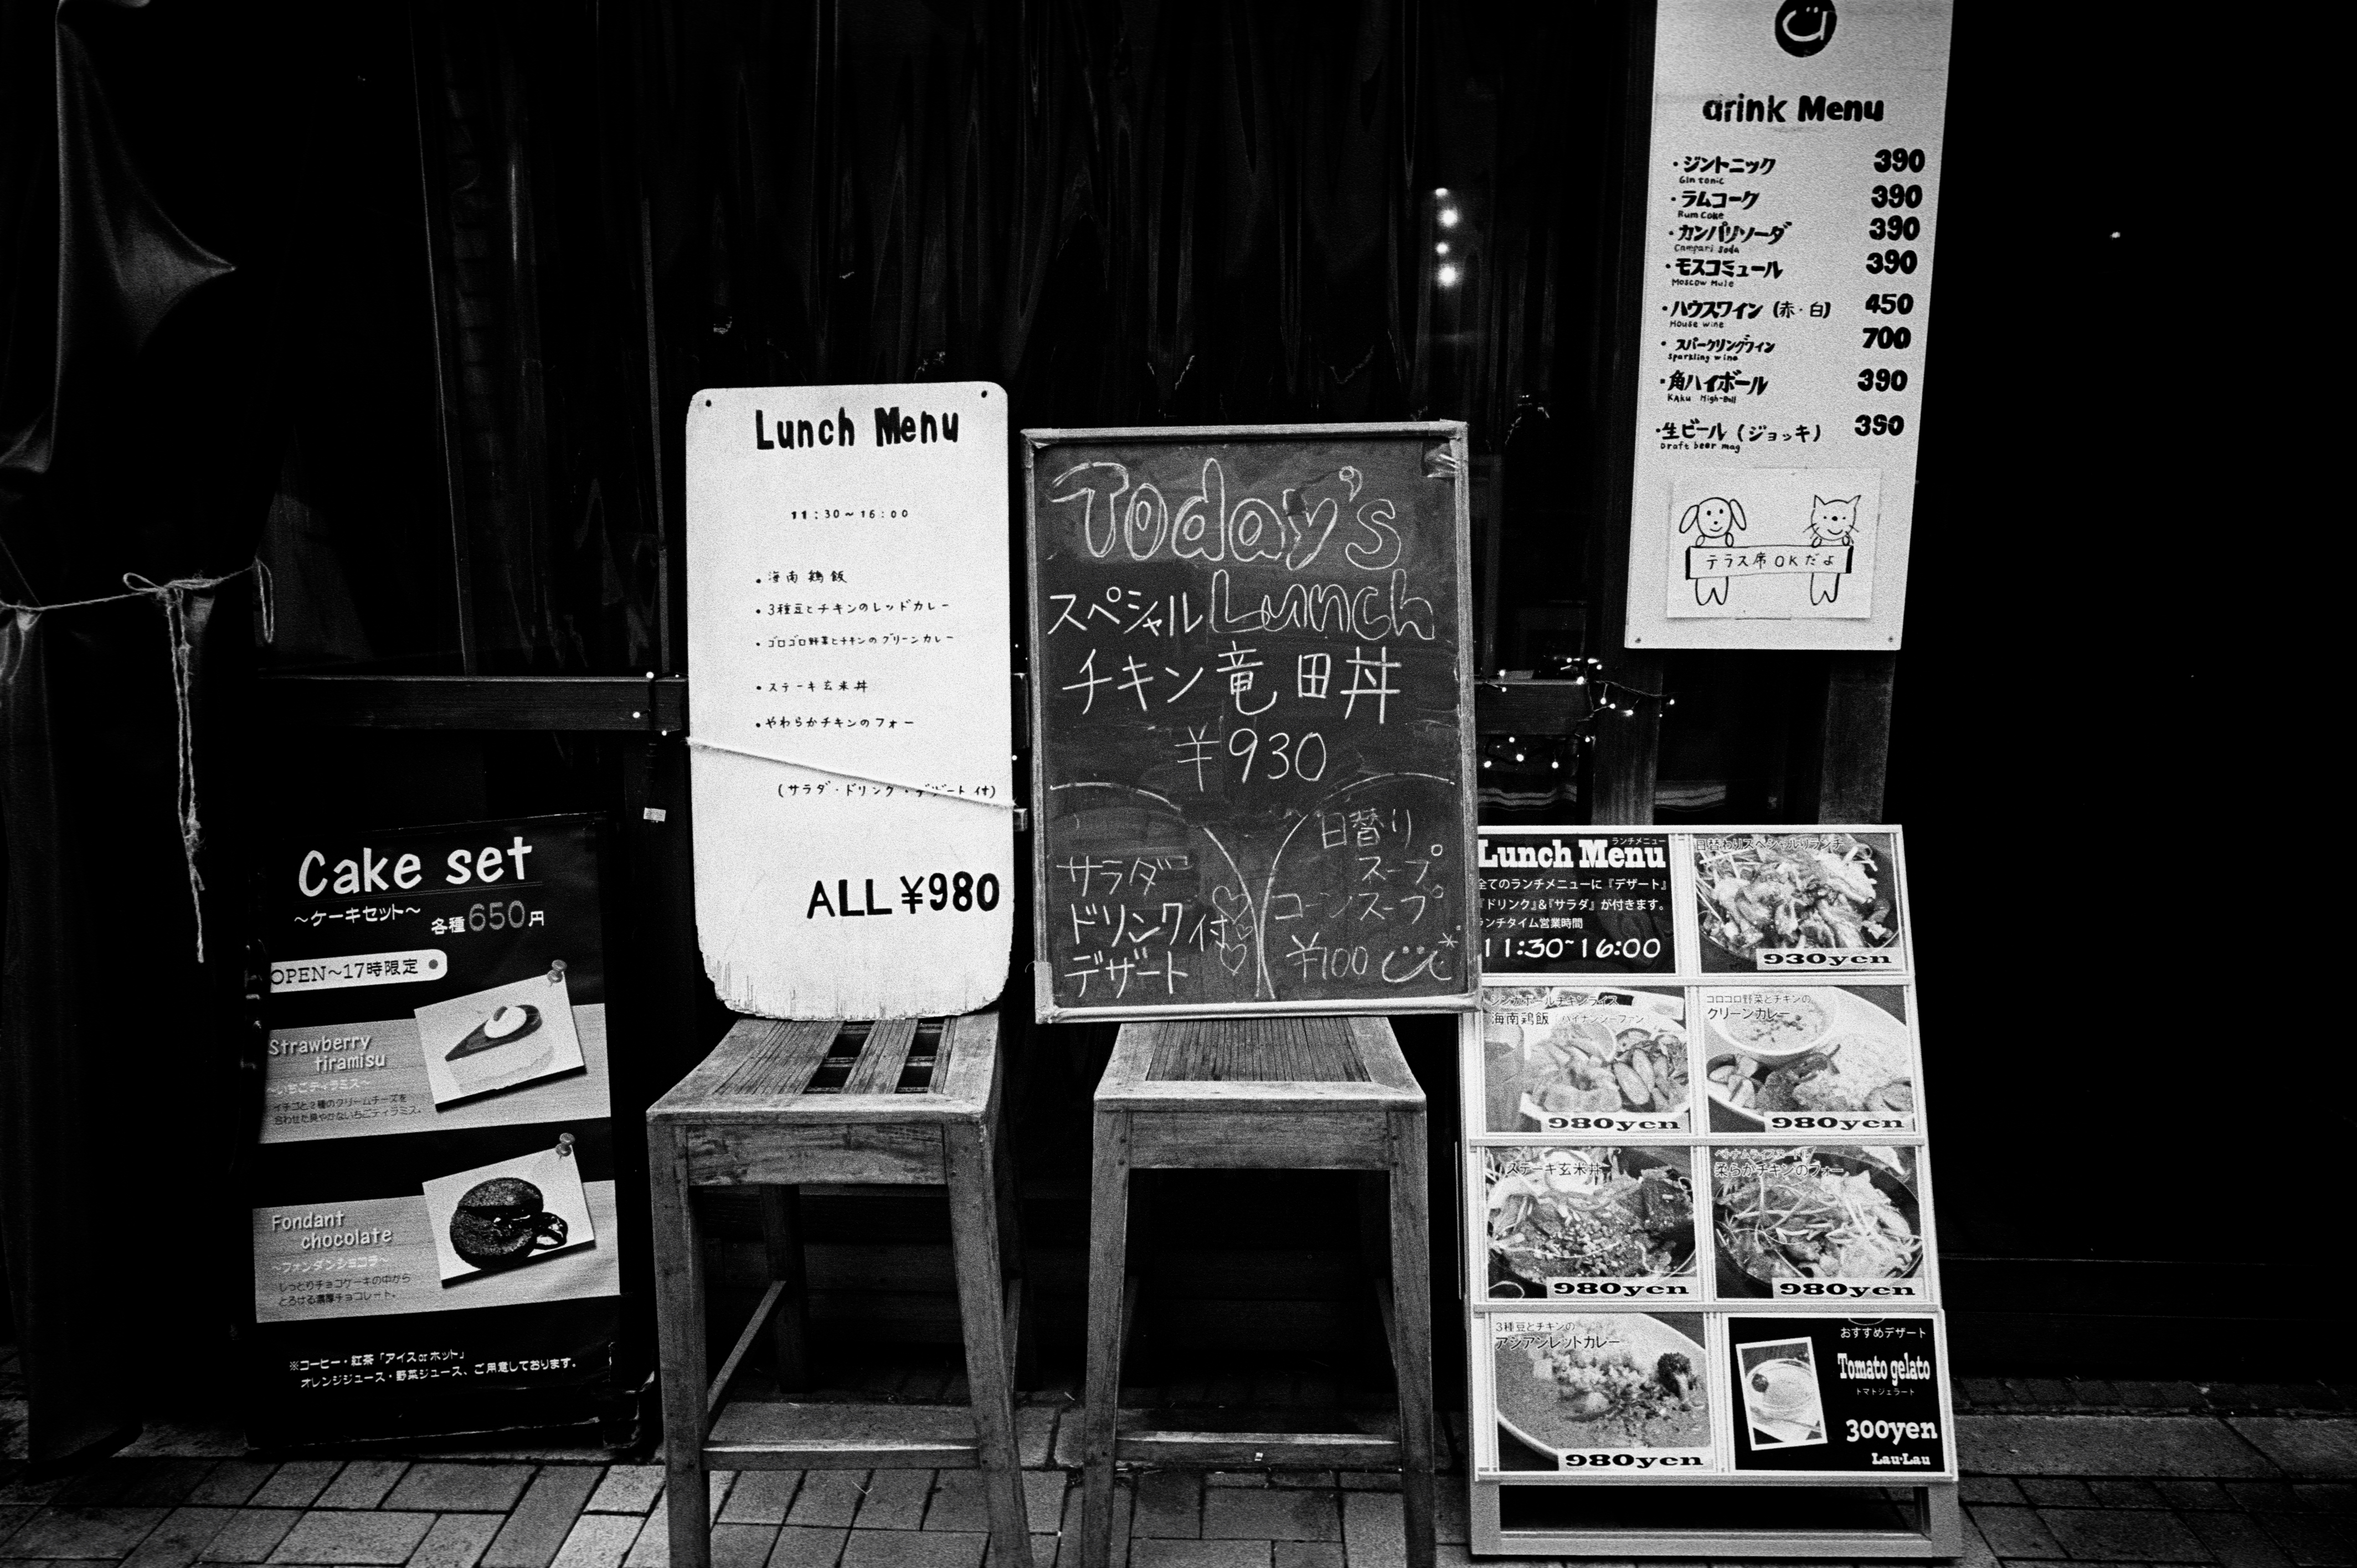 Cake set
～ケーキセット～ 各種650円
OPEN～17時限定
Strawberry
tiramisu
～いちごティラミス～
イチゴと2種のクリームチーズを
合わせた爽やかないちごティラミス。
Fondant
chocolate
～フォンダンショコラ～
しっとりチョコケーキの中から
とろける濃厚チョコレート。
※コーヒー・紅茶「アイスorホット」
オレンジジュース・野菜ジュース、ご用意しております。
Lunch Menu
11:30～16:00
・海南鶏飯
・3種豆とチキンのレッドカレー
・ゴロゴロ野菜とチキンのグリーンカレー
・ステーキ玄米丼
・やわらかチキンのフォー
(サラダ・ドリンク・デザート付)
ALL ¥980
Today's
スペシャル Lunch
チキン竜田丼
¥930
サラダ
ドリンク付
デザート
日替り
スープ
コーンスープ
¥100
drink Menu
・ジントニック 390
Gin tonic
・ラムコーク 390
Rum Coke
・カンパリソーダ 390
Campari Soda
・モスコミュール 390
Moscow Mule
・ハウスワイン (赤・白) 450
House wine
・スパークリングワイン 700
Sparkling wine
・角ハイボール 390
KAku High-Ball
・生ビール (ジョッキ) 390
Draft beer mag
テラス席OKだよ
ランチメニュー
Lunch Menu
全てのランチメニューに『デザート』
『ドリンク』&『サラダ』が付きます。
ランチタイム営業時間
11:30~16:00
日替わりスペシャルランチ
930yen
シンガポールチキンライス
海南鶏飯 ハイナンジーファン
980yen
ゴロゴロ野菜とチキンの
グリーンカレー
980yen
ステーキ玄米丼
980yen
柔らかチキンのフォー
980yen
3種豆とチキンの
アジアンレッドカレー
980yen
おすすめデザート
Tomato gelato
トマトジェラート
300yen
Lau·Lau